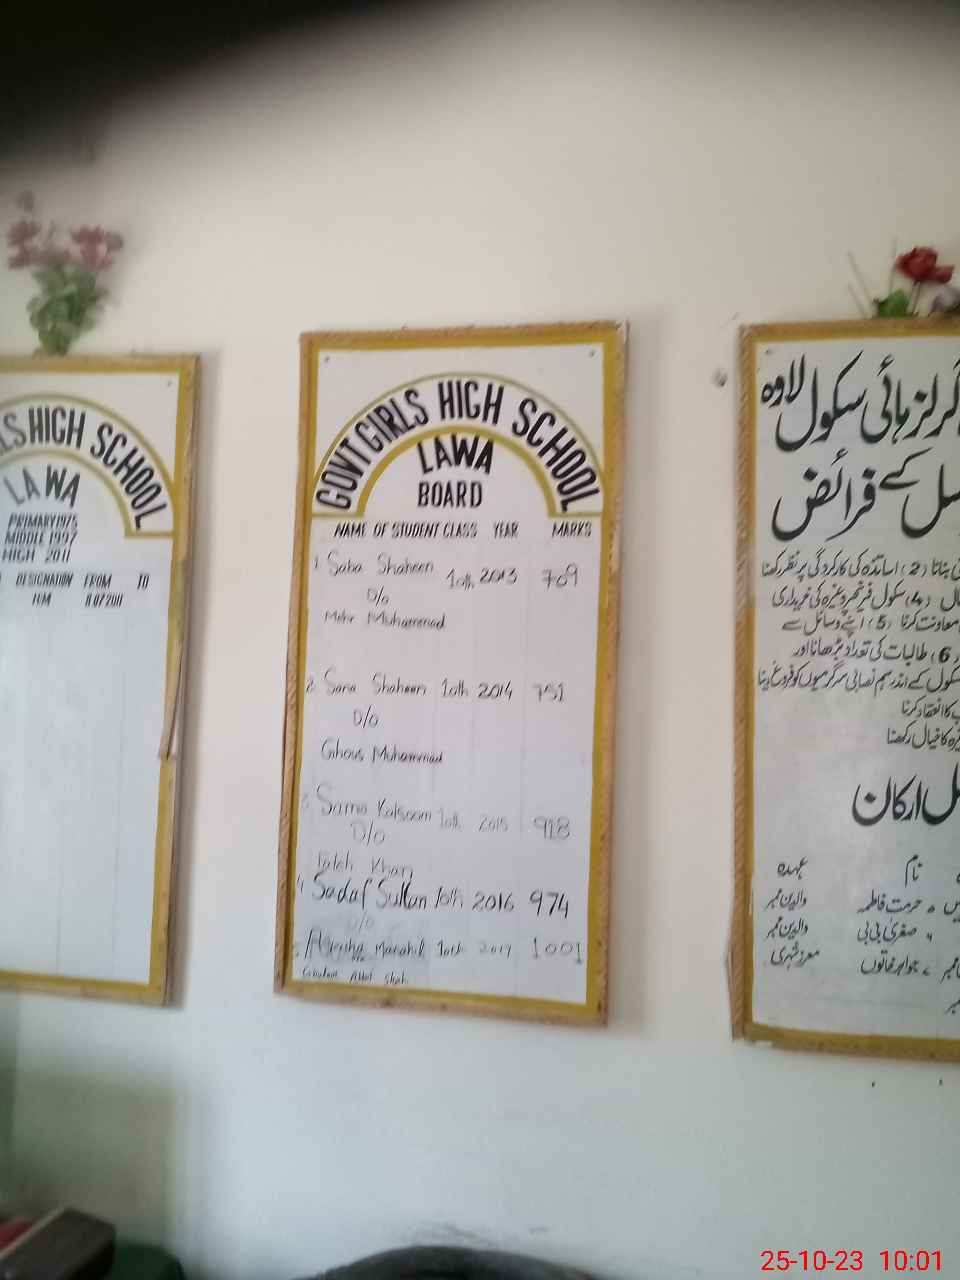 LS HIGH SCHOOL
LAWA
PRIMARY 1975
MIDDLE 1997
HIGH 2011
DESIGNATION FROM TO
H.M 11 07 2011
GOVT GIRLS HIGH SCHOOL
LAWA
BOARD
NAME OF STUDENT CLASS YEAR MARKS
1. Saba Shaheen 10th 2013 709
D/o
Mehr Muhammad
2. Sana Shaheen 10th 2014 751
D/o
Ghous Muhammad
3. Sama Kalsoom 10th 2015 918
D/o
Fateh Khan
4 Sadaf Sultan 10th 2016 974
D/o
5. Manahil 10th 1001
Shah
گرلز ہائی سکول لاوہ
کے فرائض
بنانا (2) اساتذہ کی کارکردگی پر نظر رکھنا
(4) سکول فرنیچر وغیرہ کی خریداری
معاونت کرنا (5) اپنے وسائل سے
(6) طالبات کی تعداد بڑھانا اور
سکول کے اندر ہم نصابی سرگرمیوں کو فروغ دینا
کا انعقاد کرنا
کا خیال رکھنا
ارکان
نام عہدہ
حرمت فاطمہ والدین ممبر
صغریٰ بی بی والدین ممبر
جواہر خاتون معزز شہری
25-10-23 10:01